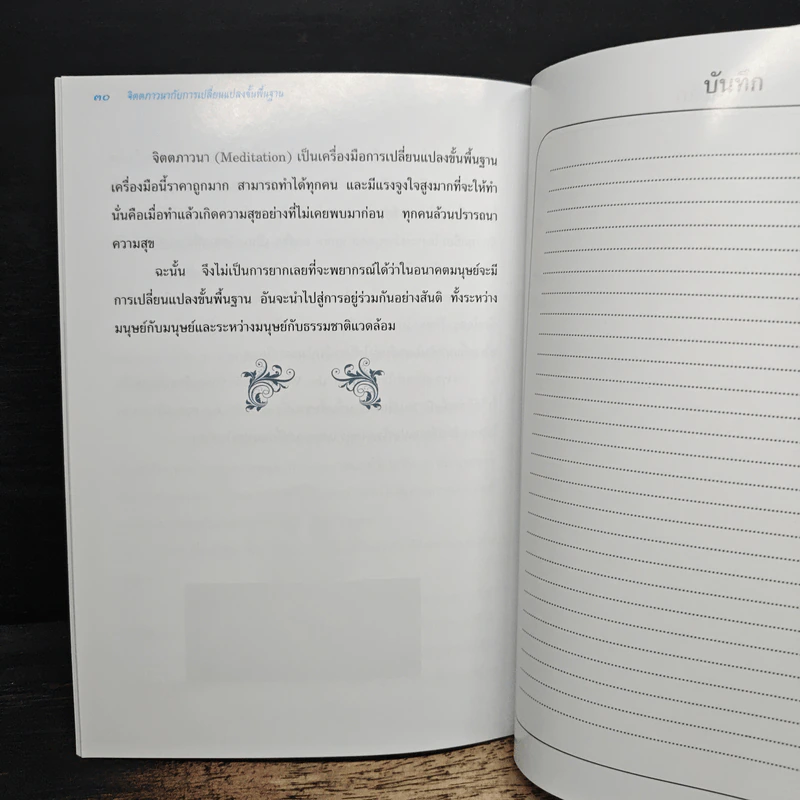 ๓๐ จิตตภาวนากับการเปลี่ยนแปลงขั้นพื้นฐาน
จิตตภาวนา (Meditation) เป็นเครื่องมือการเปลี่ยนแปลงขั้นพื้นฐาน
เครื่องมือนี้ราคาถูกมาก สามารถทำได้ทุกคน และมีแรงจูงใจสูงมากที่จะให้ทำ
นั่นคือเมื่อทำแล้วเกิดความสุขอย่างที่ไม่เคยพบมาก่อน ทุกคนล้วนปรารถนา
ความสุข
ฉะนั้น จึงไม่เป็นการยากเลยที่จะพยากรณ์ได้ว่าในอนาคตมนุษย์จะมี
การเปลี่ยนแปลงขั้นพื้นฐาน อันจะนำไปสู่การอยู่ร่วมกันอย่างสันติ ทั้งระหว่าง
มนุษย์กับมนุษย์และระหว่างมนุษย์กับธรรมชาติแวดล้อม
บันทึก